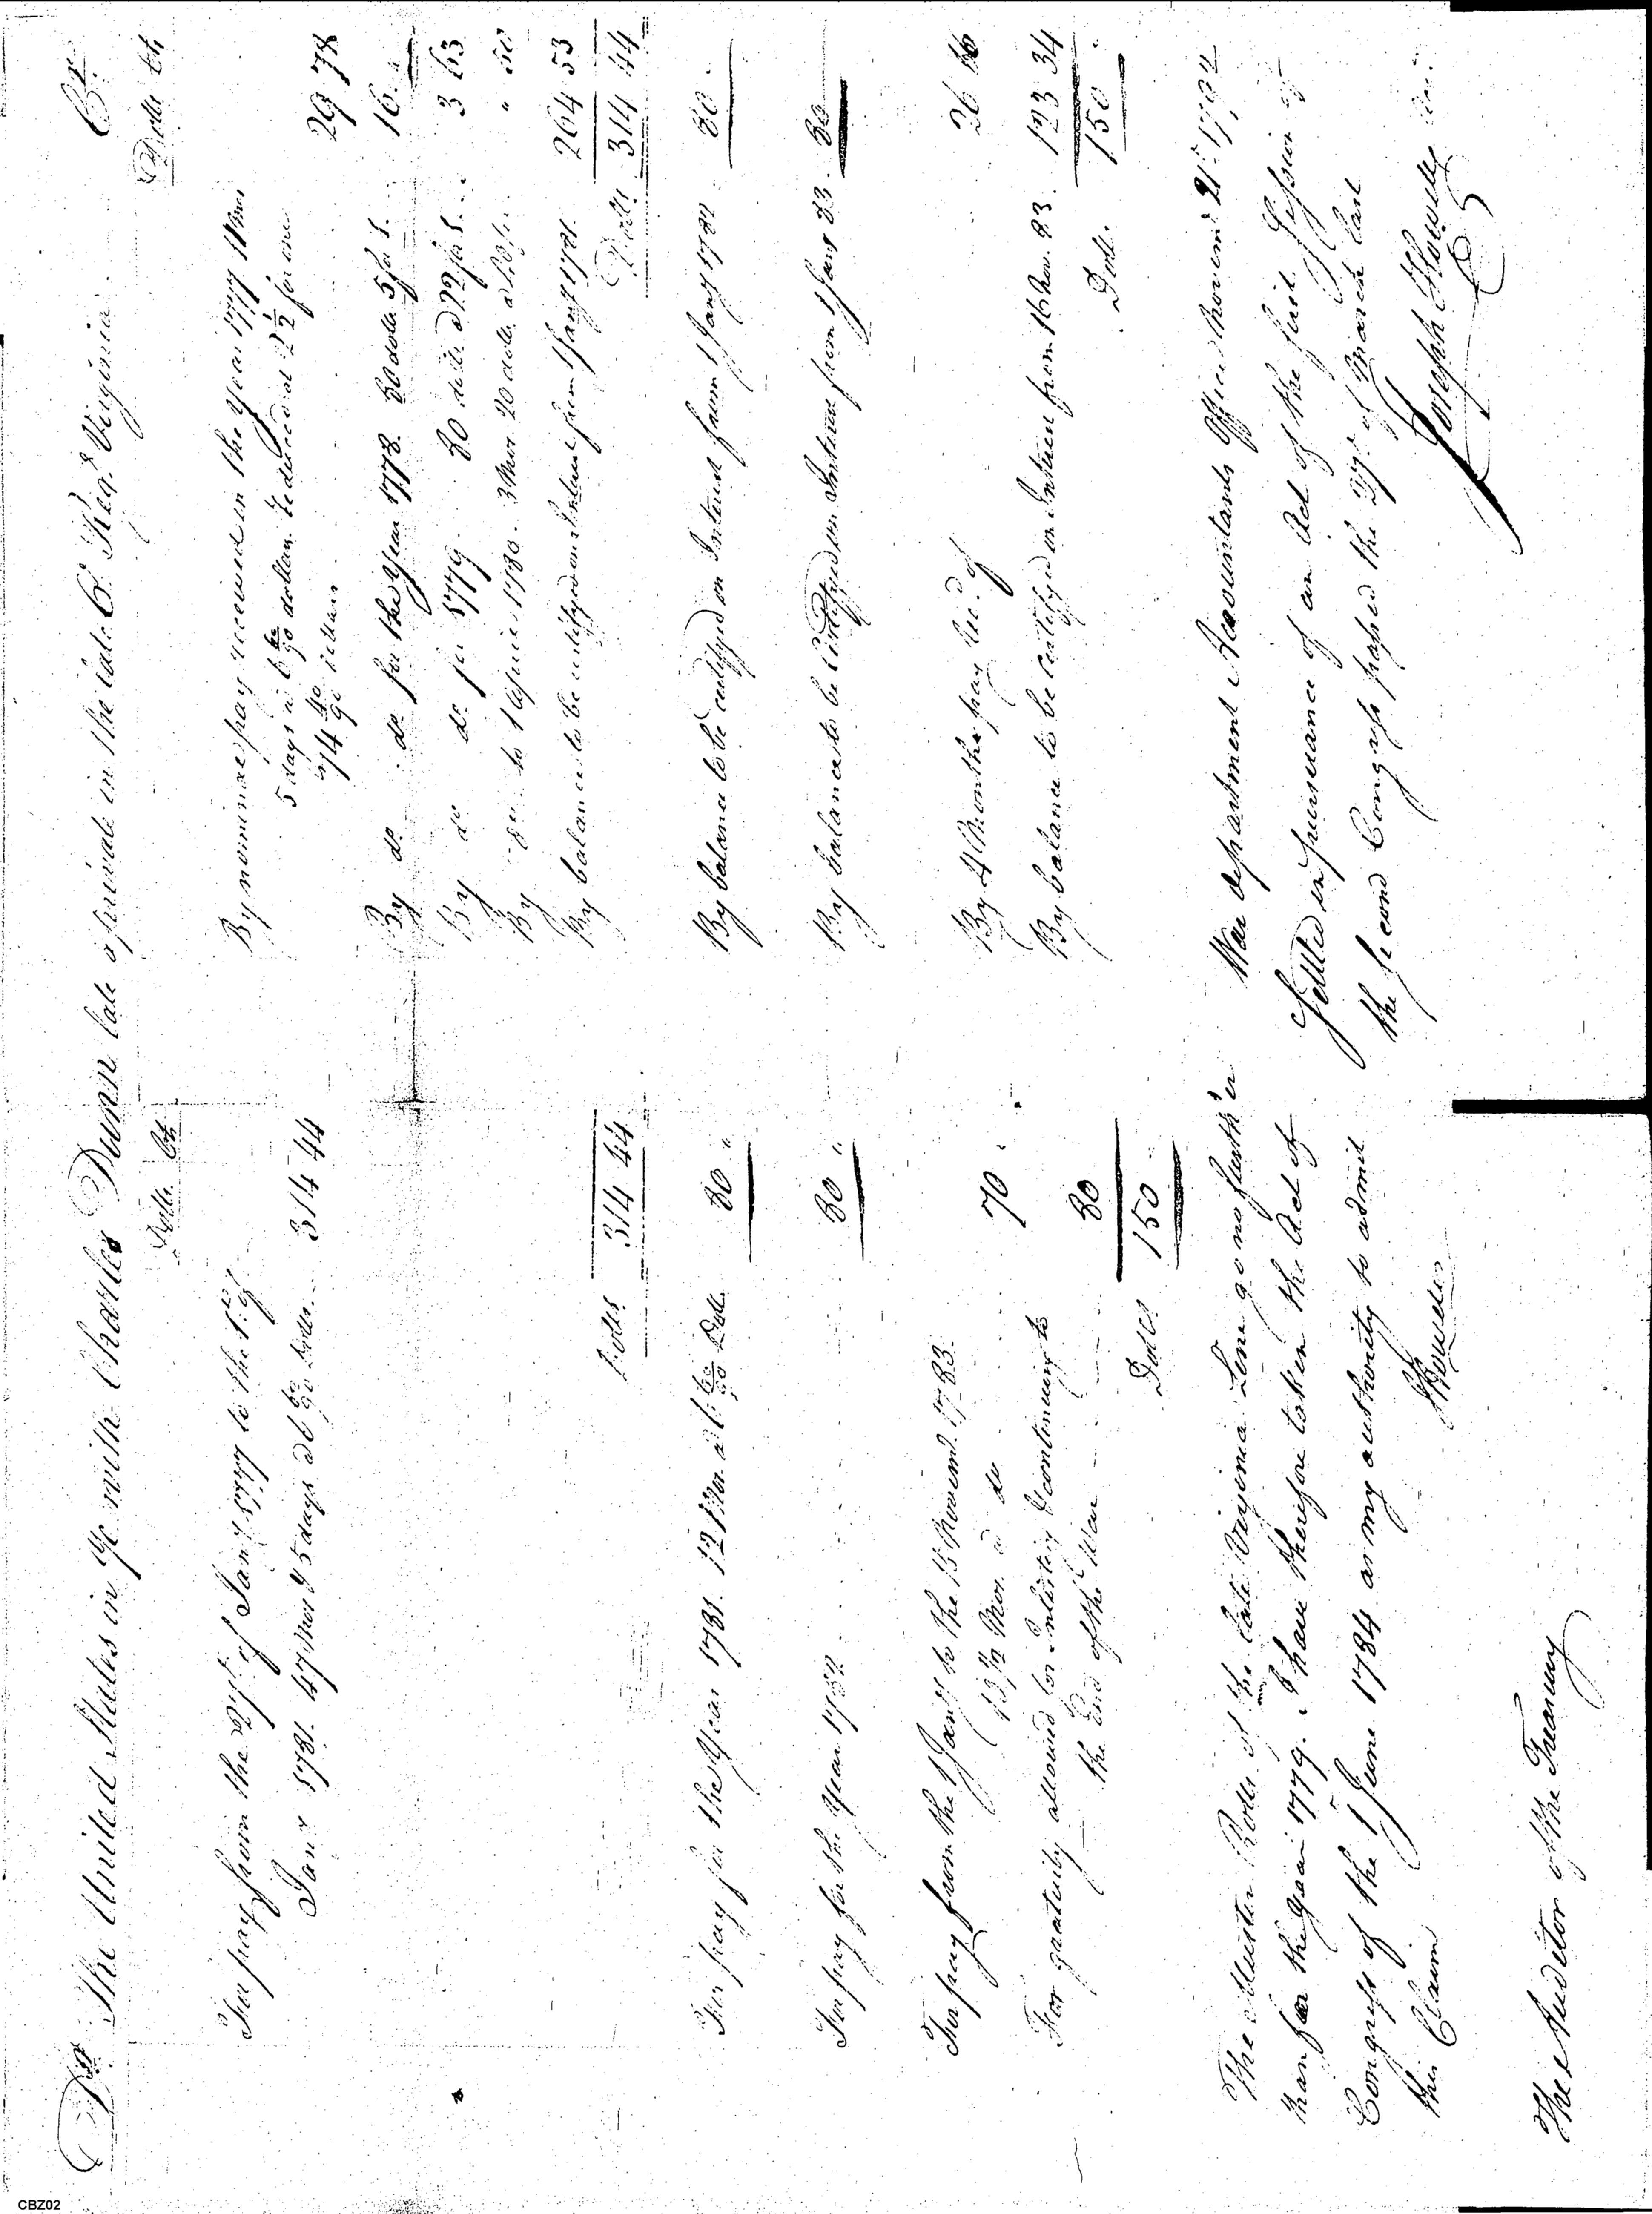 Dr. The United States in a/c with Charles Dunn late a private in the late 6th Regt. Virginia Cr.
Dolls Cts
For pay from the 27th of Jany 1777 to the 1st of
Jany 1781. 47 Mos & 5 days at 6 60/90 Dolls. 314 44
Dolls 314 44
For pay for the Year 1781. 12 Mos. at 6 60/90 Doll. 80 "
For pay for the Year 1782 80 "
For pay from the 1 Jany to the 15 Novemr. 1783.
10 1/2 Mos. @ do 70 "
For gratuity allowed for Inlisting & continuing to
the End of the War 80
Dolls 150
The Muster Rolls of the late Virginia Line go no further
than for the year 1779. I have therefore taken the Act of
Congress of the 1 June 1784 as my authority to admit
this Claim
JHowell
The Auditor of the Treasury
Dolls Cts
By nominal pay received in the Year 1777 11 Mos
5 days at 6 60/90 dollars deduced at 2 1/2 for one
74 40/90 dollars 29 78
By do. do for the Year 1778. 80 dolls 5 for 1. 16. "
By do do for 1779. 80 dolls @ 22 for 1. 3 63
By do. to 1 April 1780. 3 Mos 20 dolls a 40 for " 50
By balance to be certified on Interest from 1 Jany 1781. 264 53
Dolls 314 44
By balance to be certifyed on Interest from 1 Jany 1782 80.
By balance to be Certifyed on Interest from 1 Jany 83. 80
By 4 Months pay recd. of 26 66
By balance to be certifyed on Interest from 16 Nov. 83. 123 34
Doll. 150.
War department Accountants Office Novemr. 21st 1792
Settled in pursuance of an Act of the first Session of
the second Congress passed the 27th of March last
Joseph Howell
CBZ02